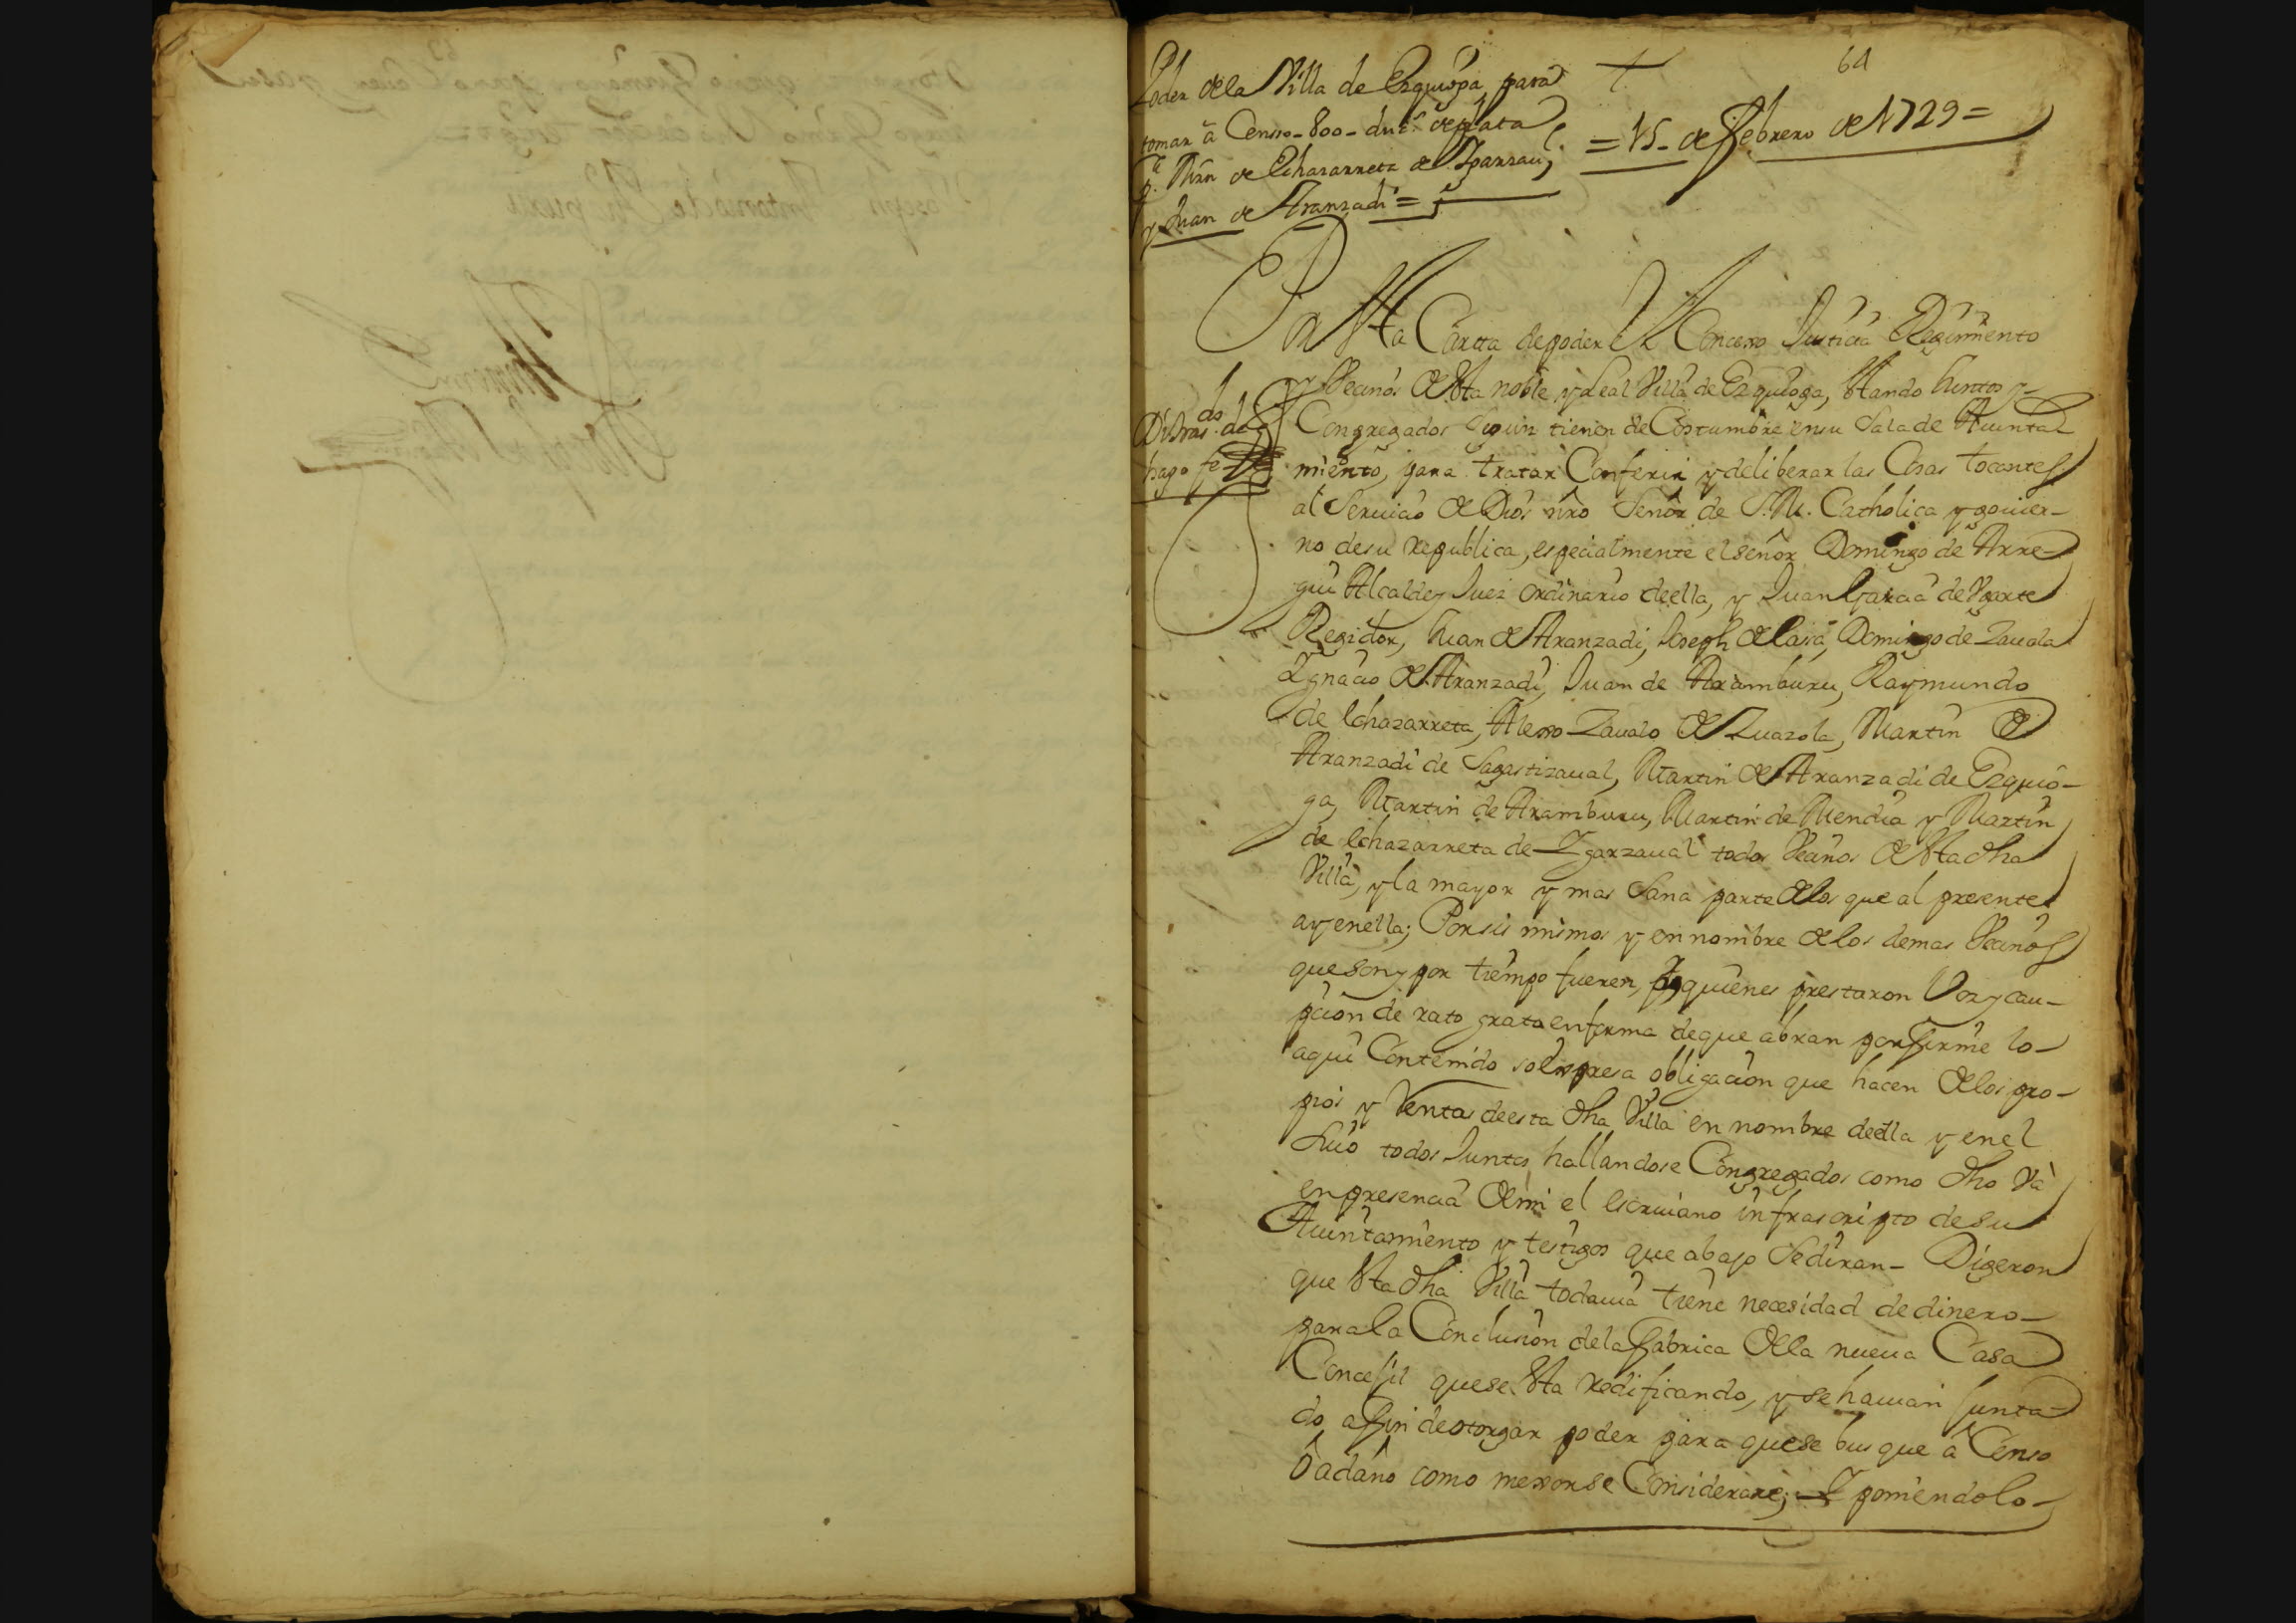 64
Poder de la Villa de Ezquioga, para
tomar â Censso - 800 - duc.s de plata
Mrn de Echazarreta de Ygarzaul;
y Juan de Aranzadi =
= 15 - de Febrero de 1729 =
En Esta Carta de poder El Concexo Justicia Regimiento
y Vecinos de Esta noble y Leal Villa de Ezquioga, Estando Juntos y
Congregados segun tienen de Costumbre en su Sala de Aiunta-
miento, para tratar Conferir y deliberar las Cosas tocantes
Di tras.do
hago fe
al Seruicio de Dios nro Señor de S.M. Catholica y gouier-
no de su republica, especialmente el señor Domingo de Arre-
gui Alcalde y Juez ordinario de ella, y Juan Garcia de Vgarte
Regidor, Juan de Aranzadi, Joseph de Lasa, Domingo de Zauala
Ygnacio de Aranzadi, Juan de Aramburu, Raymundo
de Echazarreta, Alexo Zaualo de Zuazola, Martin de
Aranzadi de Sagastizaual, Martin de Aranzadi de Ezquio-
ga, Martin de Aramburu, Martin de Mendia y Martin
de Echazarreta de Ygarzaual todos Vecinos de Esta dha
Villa, y la mayor y mas Sana parte de los que al presente
ay en ella; Por sis mismos y en nombre de los demas Vecinos
que son y por tiempo fueren, quienes prestaron Voz y cau-
pcion de rato grato en forma de que abran por firme lo
aqui Contenido so Expresa obligacion que hacen de los pro-
pios y Rentas de esta dha Villa en nombre de ella y en el
Suio todos Juntos hallandose Congregados como dho Và
en presencia de mi el Escriuano infrascripto de su
Aiuntamiento y testigos que abajo Se diran - Digeron
que Esta dha Villa todauia tiene necesidad de dinero
para la Conclusion de la fabrica de la nueua Casa
Concejil que se Esta redificando, y se hauian Junta-
do, a fin de otorgar poder para que se busque â Censo
ô a daño como mexor se Considerare; Y poniendolo